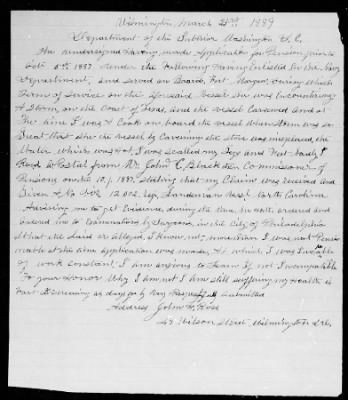 Wilmington March 22nd 1889
Department of the Interior Washington D.C.
The undersigned having made Application for Pension prior to
Oct 5th 1887 under the Following Having Enlisted In the Navy
Department, and served on Board, Fort Morgan, During which
Term of Service on the aforesaid Vessel She was Encountering
A Storm, on the Coast of Texas, and the vessel Careened and at
the time I was A Cook on board the vessel When Storm was so
Great that she the vessel by Careening the stove was misplaced, the
Water which was Hot, I was scalled my Legs and Feet badly I
Recd A Postal from Mr John C. Black then Commissioner of
Pensions on the 10, 1887. Stating that my Claim was received and
Given A No Viz 12.802. Navy North Carolina
Advising me to get Evidence, during the time he wrote, ordered and
ordered me to Examination by Surgeons, in the City of Philadelphia
What the said or alleged, I know not, moreover I was not Pensio
nable at the time Application was made, At which I was Incapable
of work constant, I am anxious to learn If not Incompatible
To your Honor Why I am not I am still suffering my health is
Fast Decreasing as days go by Very Respectfully Submitted
Address John H. Rose
Wilson Street, Wilmington Del.